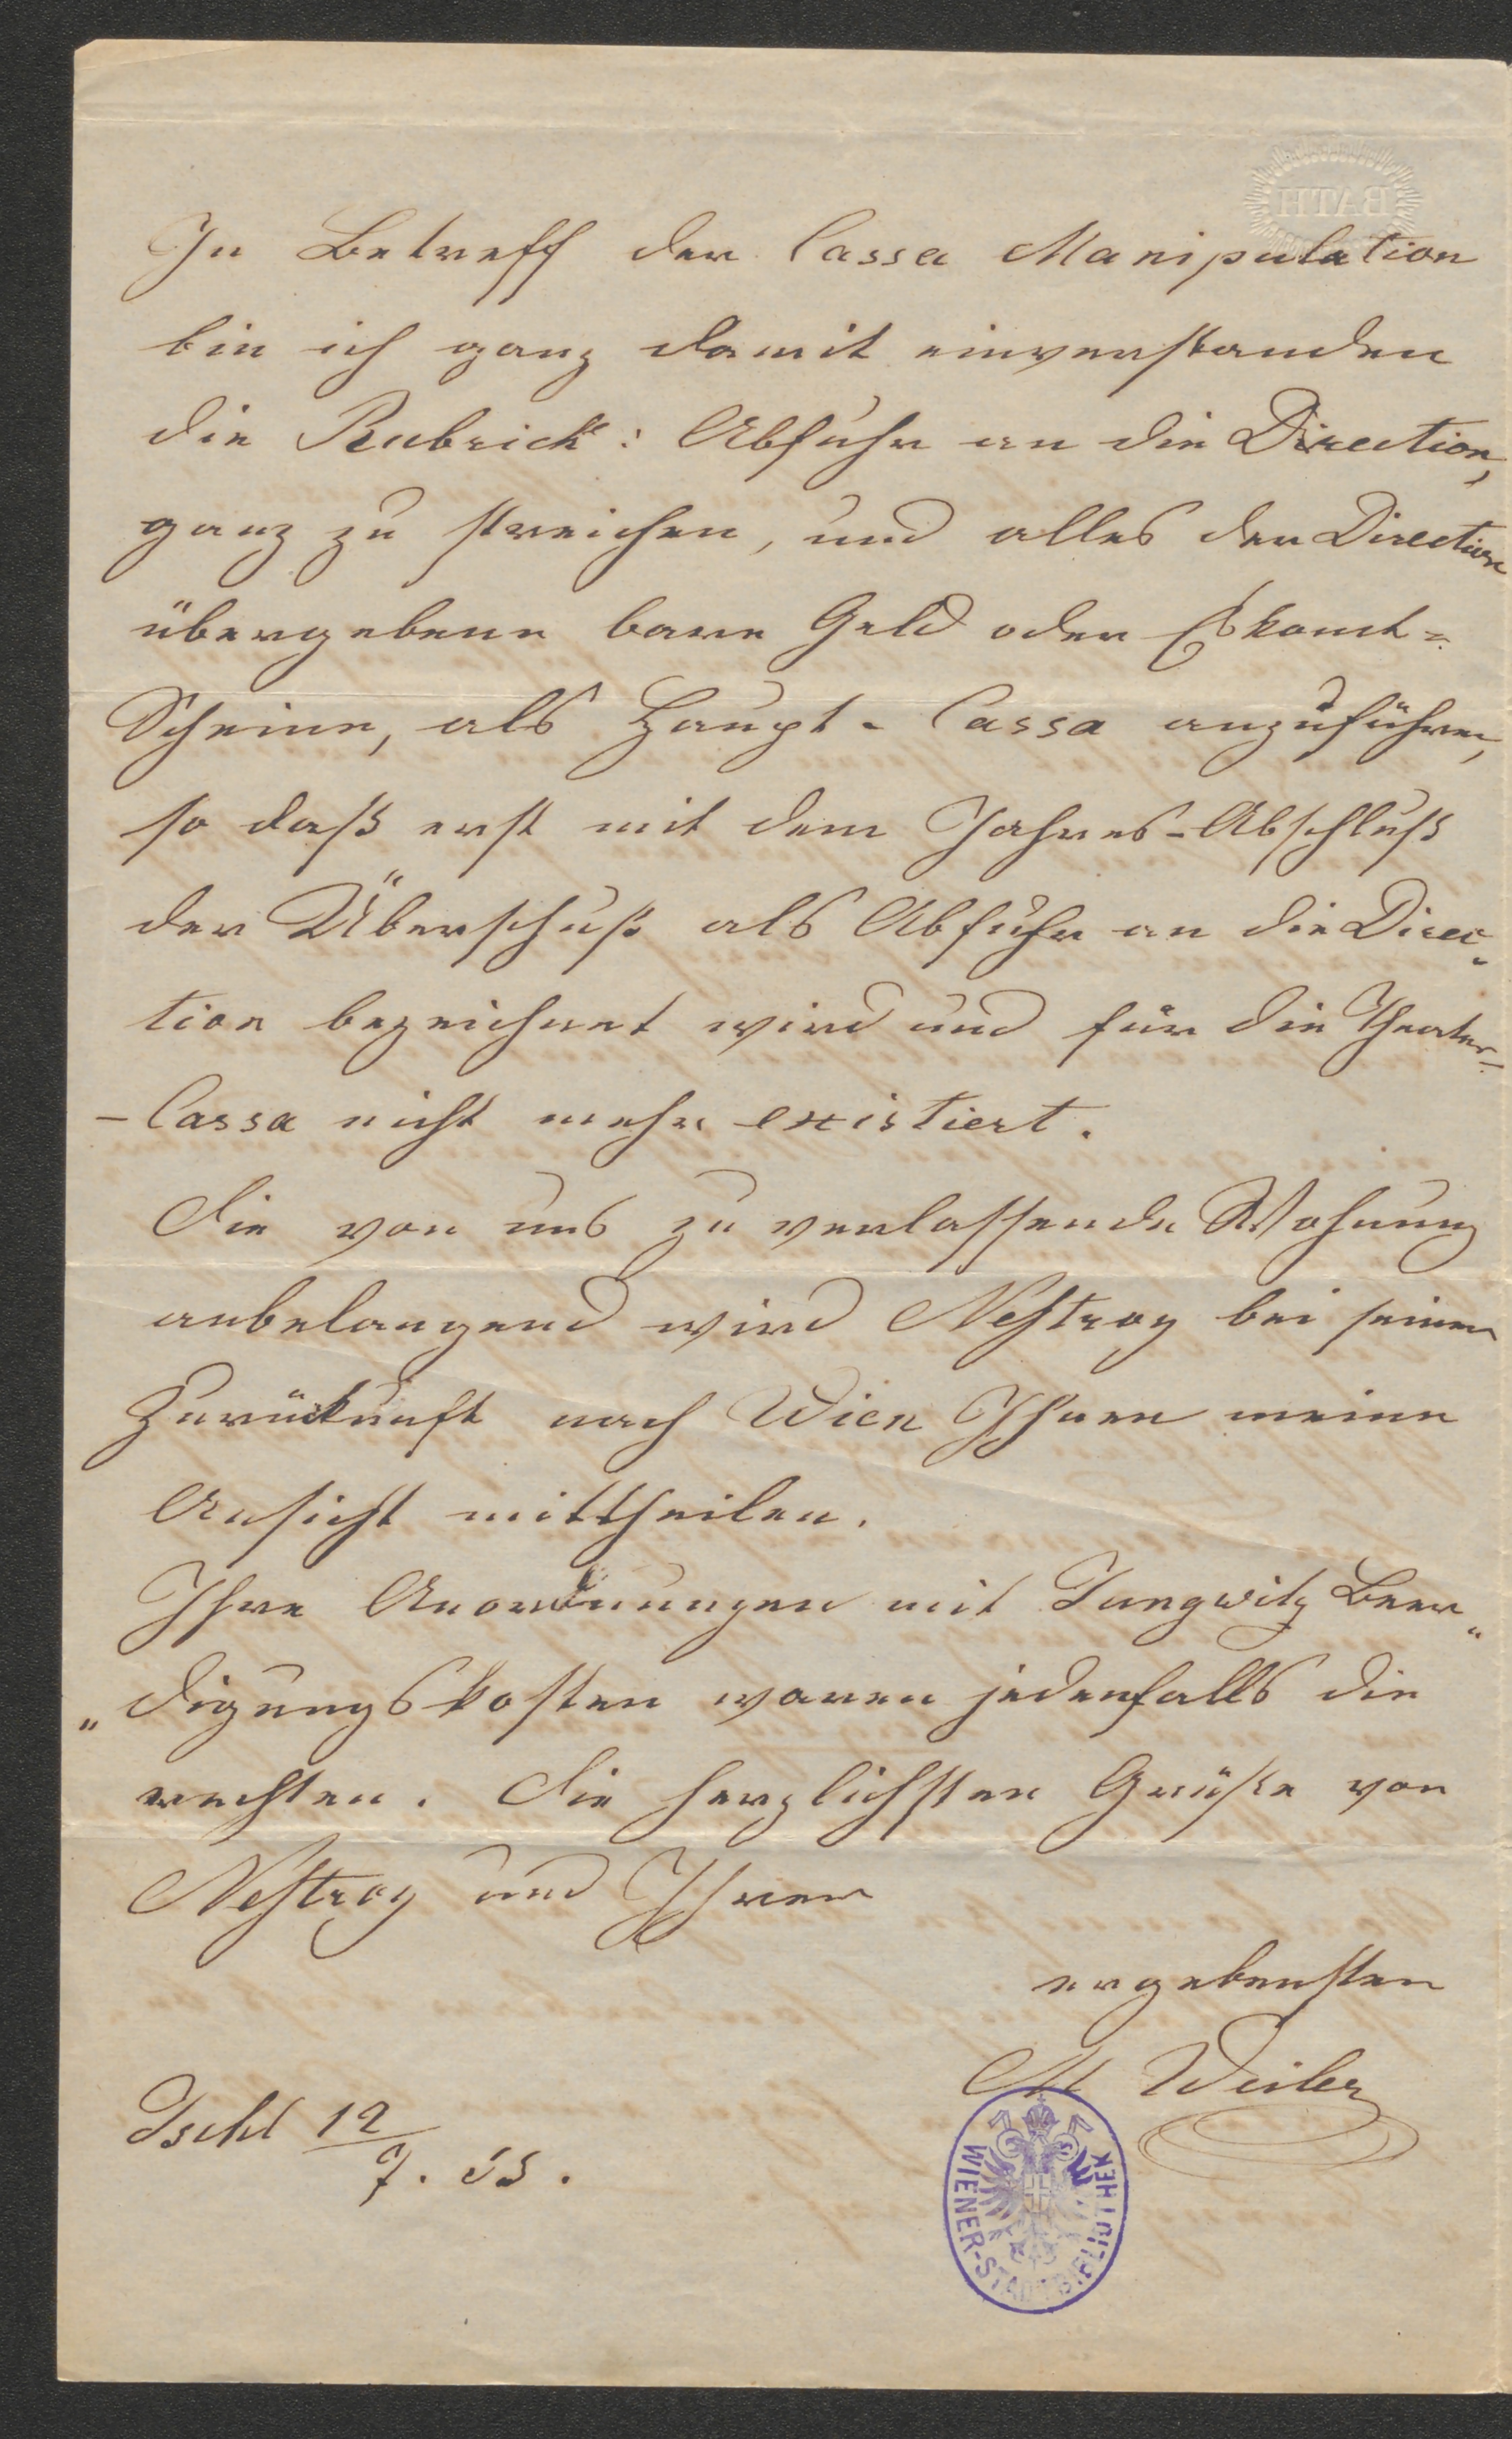 BATH
In Betreff der Cassa Manipulation
bin ich ganz damit einverstanden
die Rubrick: Abfuhr an die Direction,
ganz zu streichen, und alles der Direction
übergebene bare Geld oder Eskomt-
Scheine, als Haupt-Cassa anzuführen,
so daß erst mit dem Jahres-Abschluß
der Überschuß als Abfuhr an die Direc-
tion bezeichnet wird und für die Theater-
-Cassa nicht mehr existiert.
Die von uns zu verlassende Wohnung
anbelangend wird Nestroy bei seiner
Zurückkunft nach Wien Ihnen meine
Ansicht mittheilen.
Ihre Anordnungen mit Jungwitz Beer„
„digungskosten waren jedenfalls die
rechten. Die herzlichsten Grüße von
Nestroy und Ihrer
ergebensten
M Weiler
Ischl 12/7. 55.
WIENER-STADTBIBLIOTHEK